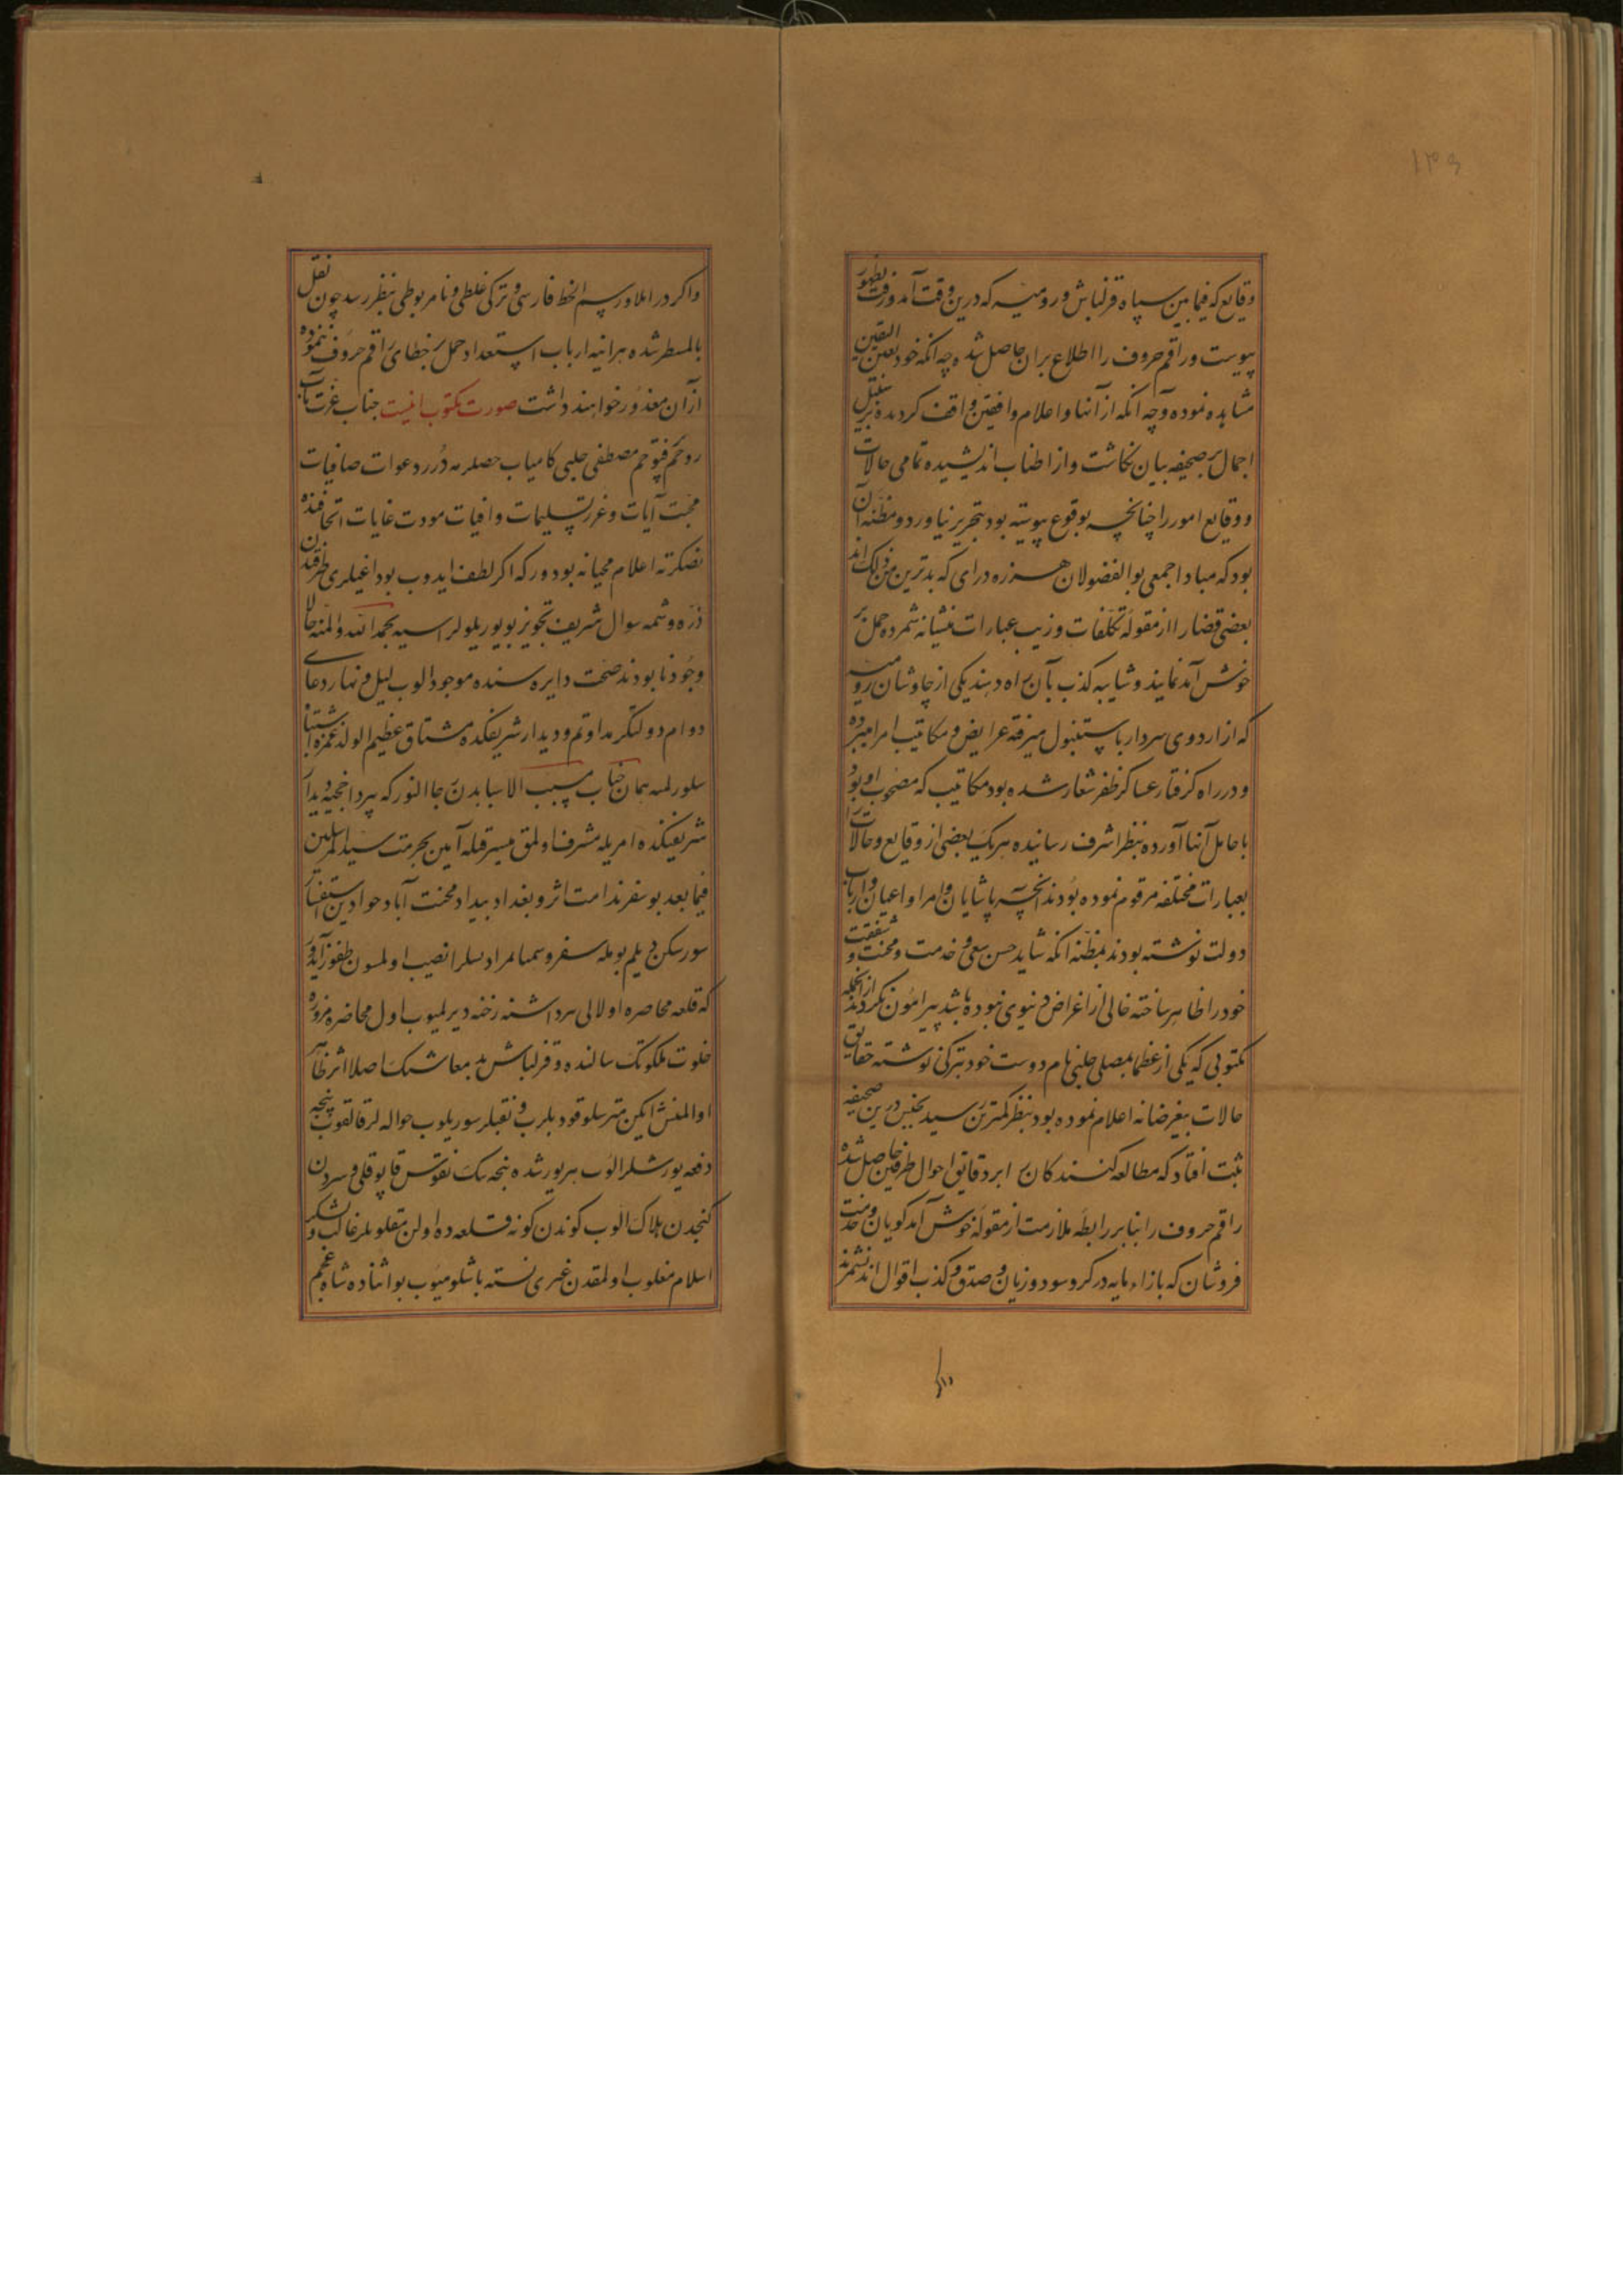 ۱۳۵
وقایع که فیمابین سپاه قزلباش و رومیه که درین وقت آمد و رفت بظهور
پیوست و راقم حروف را اطلاع بران حاصل شده چه آنکه خود بعین الیقین
مشاهده نموده و چه آنکه از آنها و اعلام واقفین واقف کردیده بر سبیل
اجمال بر صحیفه بیان نکاشت و از اطناب اندیشیده تمامی حالات
و وقایع امور را چنانچه بوقوع پیوسته بود بتحریر نیاورد و مظنه آن
بود که مبادا جمعی بوالفضولان هرزه درای که بدترین
بعضی قضا را از مقوله تکلفات و زیب عبارات منشیانه شمرده حمل بر
خوش آمد نمایند و شایبه کذب بآن راه دهند یکی از چاوشان رومیه
که از اردوی سردار باستنبول میرفته عرایض و مکاتیب امرا میبرده
و در راه کرفتار عساکر ظفر شعار شده بود مکاتیب که مصحوب او بود
با حامل آنها آورده بنظر اشرف رسانیده هر یک بعضی از وقایع و حالات
بعبارات مختلفه مرقوم نموده بودند آنچه پاشایان و امرا و اعیان و ارباب
دولت نوشته بودند بمظنه آنکه شاید حسن سعی و خدمت و محنت و مشقت
خود را ظاهر ساخته خالی از اغراض دنیوی نبوده باشد پیرامون نکردید از آنجمله
مکتوبی که یکی از عظما بمصلی چلبی نام دوست خود بترکی نوشته حقایق
حالات بیغرضانه اعلام نموده بود بنظر کمترین رسید بجنس درین صحیفه
ثبت افتاد که مطالعه کنندکان را بر دقایق احوال طرفین حاصل شده
راقم حروف را بنابر رابطه ملازمت از مقوله خوش آمد کویان و خدمت
فروشان که بازاء مایه در کرو سود و زیان و صدق و کذب اقوال اند نشمرند
واکر در املا و رسم الخط فارسی و ترکی غلطی و نامربوطی بنظر رسد چون نقل
بالمسطر شده هر آینه ارباب استعداد حمل بر خطای راقم حروف ننموده
از آن معذور خواهند داشت صورت مکتوب اینست جناب عزت مآب
روحم فتوحم مصطفی چلبی کامیاب حضرلرینه درر دعوات صافیات
محبت آیات و غرر تسلیمات وافیات مودت غایات اتحافندن
نصکرته اعلام محبانه بودور که اکر لطف ایدوب بوداغیلری طرفندن
ذره و شمه سوال شریف تجویز بویوریلولر ایسه بحمد الله والمنه حالا
وجود نابودند صحت دایره سنده موجود الوب لیل و نهار دعای
دوام دولتکر مداوتم و دیدار شریفکده مشتاق عظیم الولد غمزه اشتباه
بیورلمیه همان جناب مسبب الاسبابدن رجا النور که
شریفیکذه امریله مشرف اولمق میسر قیله آمین بحرمت سید المرسلین
فیما بعد بو سفر ندامت اثر و بغداد بیداد محنت آباد حوادثین استفسار
سورسکن دیلم بومله سفر و سمبا مرادسلرا نصیب اولمسون
که قلعه محاصره اولالی سردا رخنه دیرلمیوب اول محاضره مزوره
خلوت ملکوتک سالنده و قزلباش بد معاشک اصلا اثر ظاهر
دفعه یورشلر الوب هر یورشده نیجه نفوس قاپوقلی و سردن
کنجدن هلاک الوب کوندن کونه قلعه ده اولن مقلوبلر غالب و لشکر
اسلام مغلوب اولمقدن غیری نسته باشلومیوب بو اثناده شاه عجم